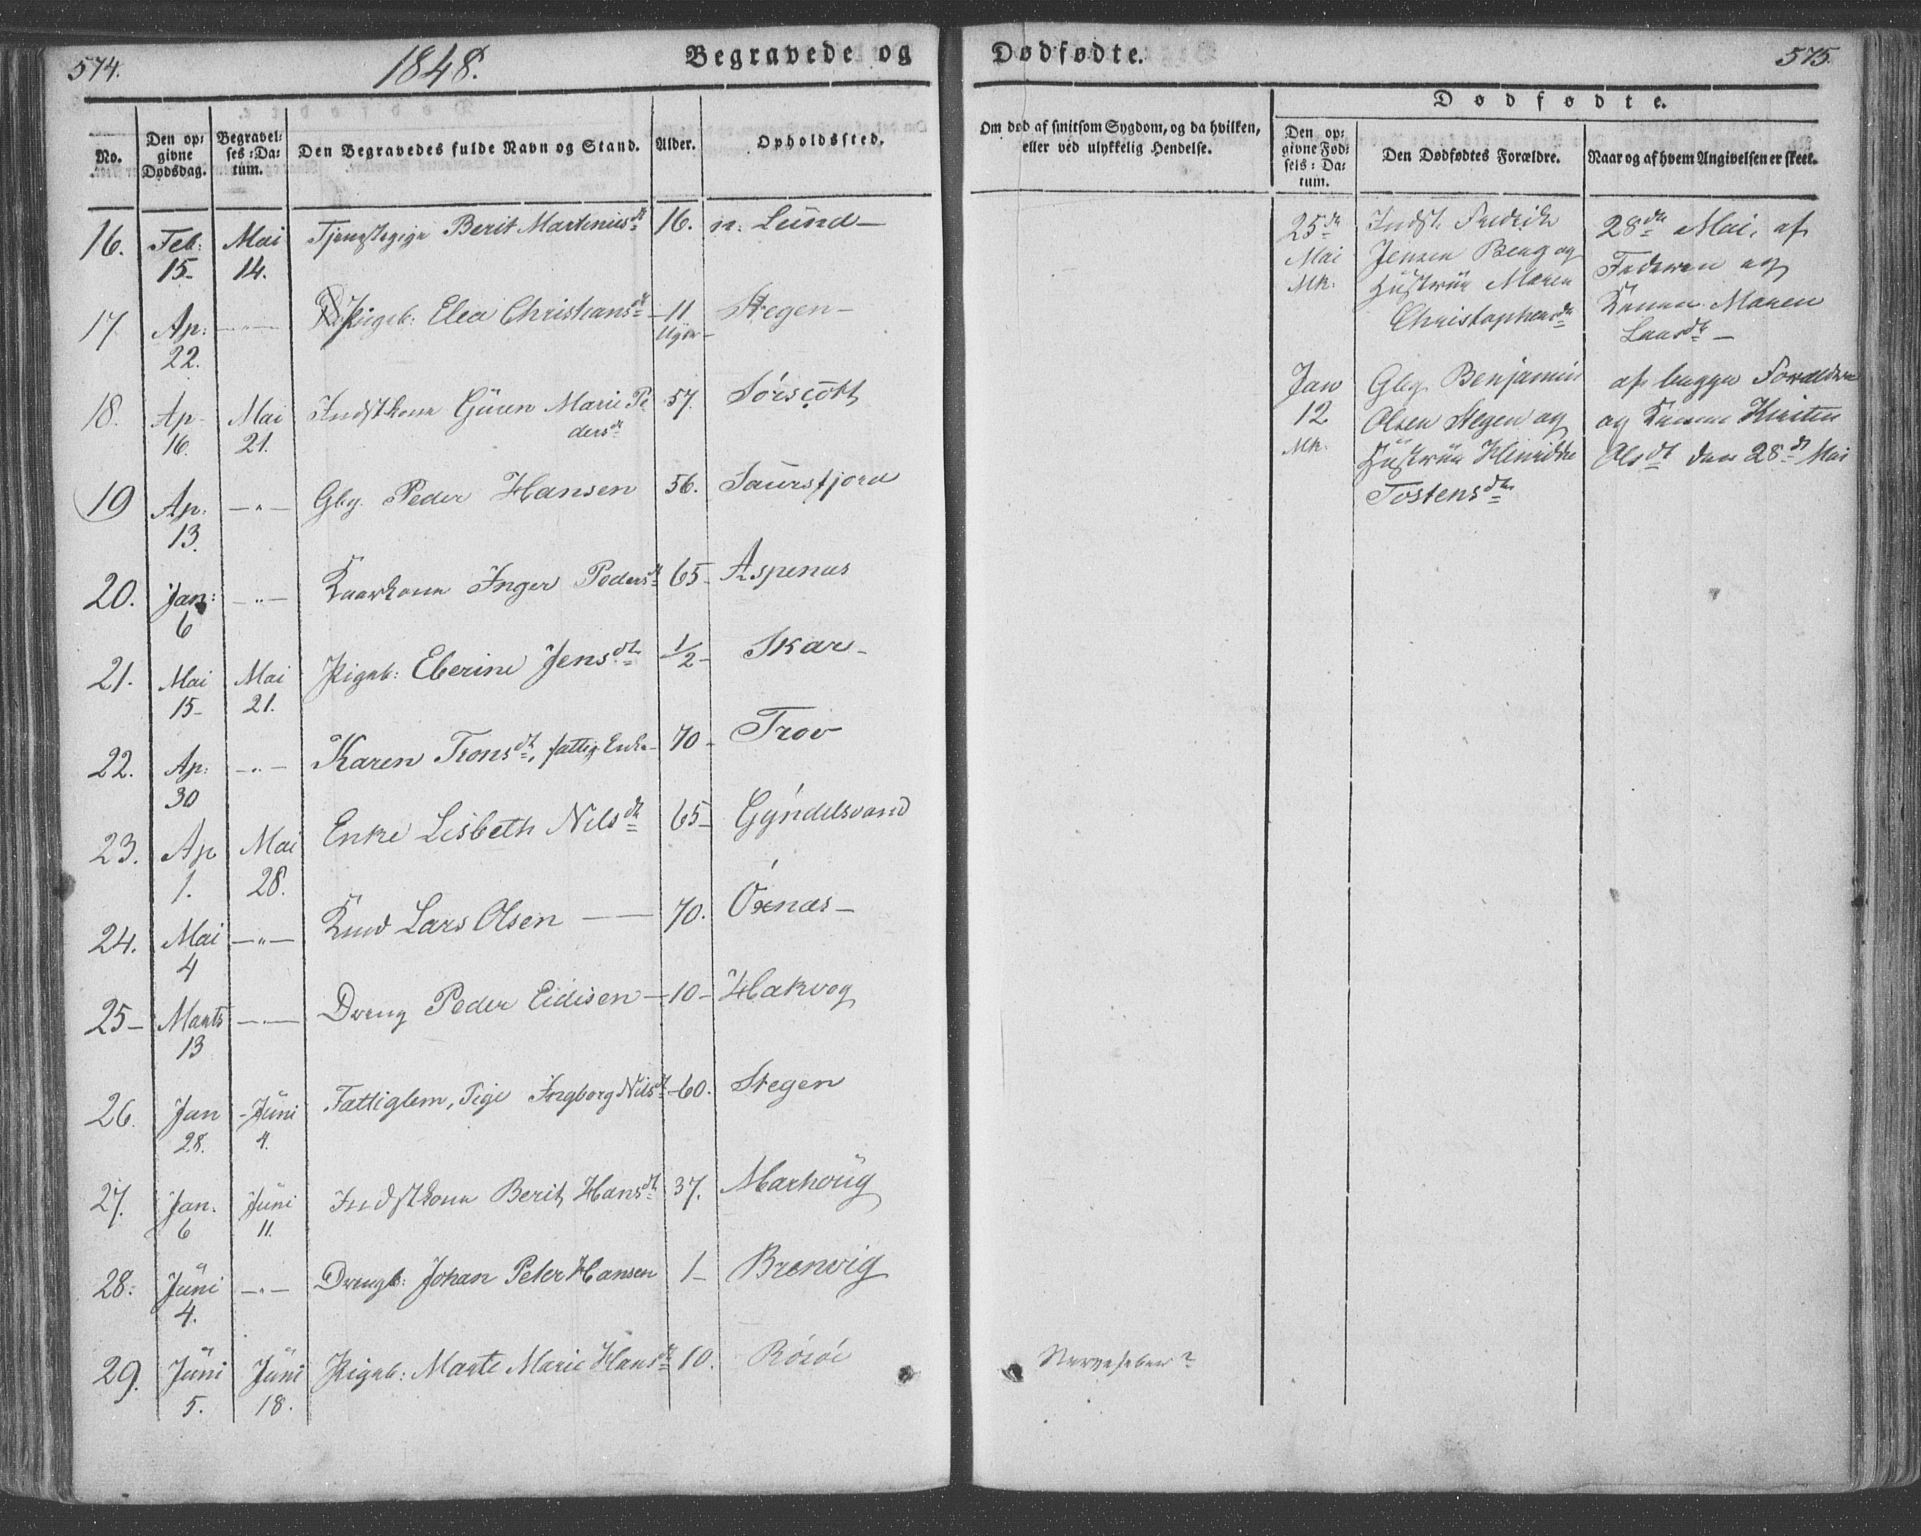 574.
1848.
Begravede og
No.
Den op-
givne
Dødsdag.
Begravel-
ses-Da-
tum.
Den Begravedes fulde Navn og Stand.
Alder.
Opholdssted.
16. Feb: 15- Mai 14. Tjenstepige Berit Martinusdt 16. n. Lund-
17. Ap: 22. -"- Pigeb: Elea Christiansdt 11 Uger- Stegen-
18. Ap- 16. Mai 21. Indstkone Guren Marie Pe
dersdt 57. Sörscött
19 Ap. 13. -"- Gbg. Peder Hansen 56. Saursfjord
20. Jan: 6 -"- Kaarkone Inger Pedersdt 65- Aspenæs
21. Mai 15- Mai 21. Pigeb: Eberine Jensdt 1/2- Skar-
22. Ap: 30 -"- Karen Tronsdt, fattig Enke- 70- Trov
23. Ap 1. Mai 28. Enke Lisbeth Nilsdt 65- Gyndelsvand
24. Mai 4 -"- Lars Olsen 70. Öxnæs-
25- Marts 13 -"- Dreng Peder Eidisen 10- Hakvog
26. Jan 28. Juni 4. Fattiglem, Pige Ingborg Nilsdt 60. Stegen
27. Jan. 6 Juni 11. Indstkone Berit Hansdt 37. Marhoug
28: Juni 4. -"- Drengb: Johan Peter Hansen 1- Brenvig
29. Juni 5. Juni 18. Pigeb: Marte Marie Hansdt 10. Röröe
Dødfødte.
575.
Om død af smitsom Sygdom, og da hvilken,
eller ved ulykkelig Hendelse.
Dødfødte.
Den op-
givne Fød-
sels-Da-
tum.
Den Dødfødtes Forældre.
Naar og af hvem Angivelsen er skeet.
25de Indst. Fredrik 28de Mai, af
Mai Jensen Berg og Faderen og
Mk. Hustrue Maren Konen Maren
Christophersdt Larsdt-
Jan Gbg. Benjamin af begge Forældre
12 Olsen Stegen og og Konen Kirsten
Mk. Hustrue Olsdt den 28de Mai
Tostensdt
Nervefeber?